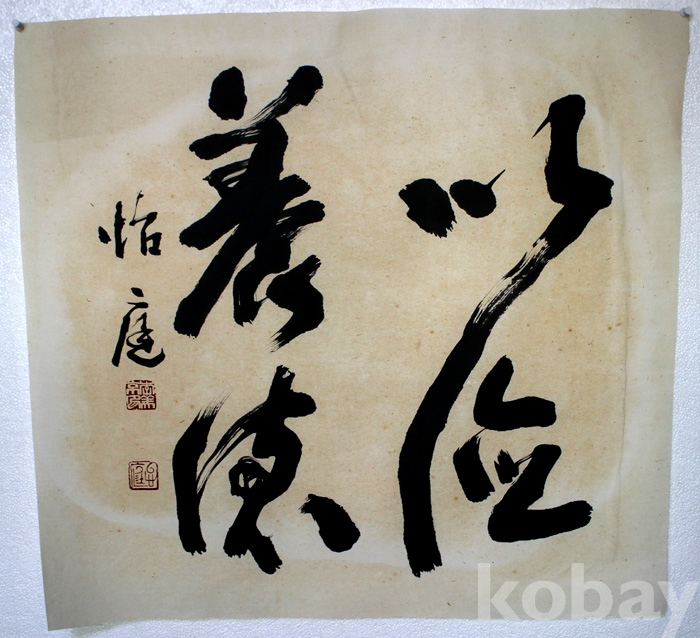 以儉
養德
怡庭
kobay